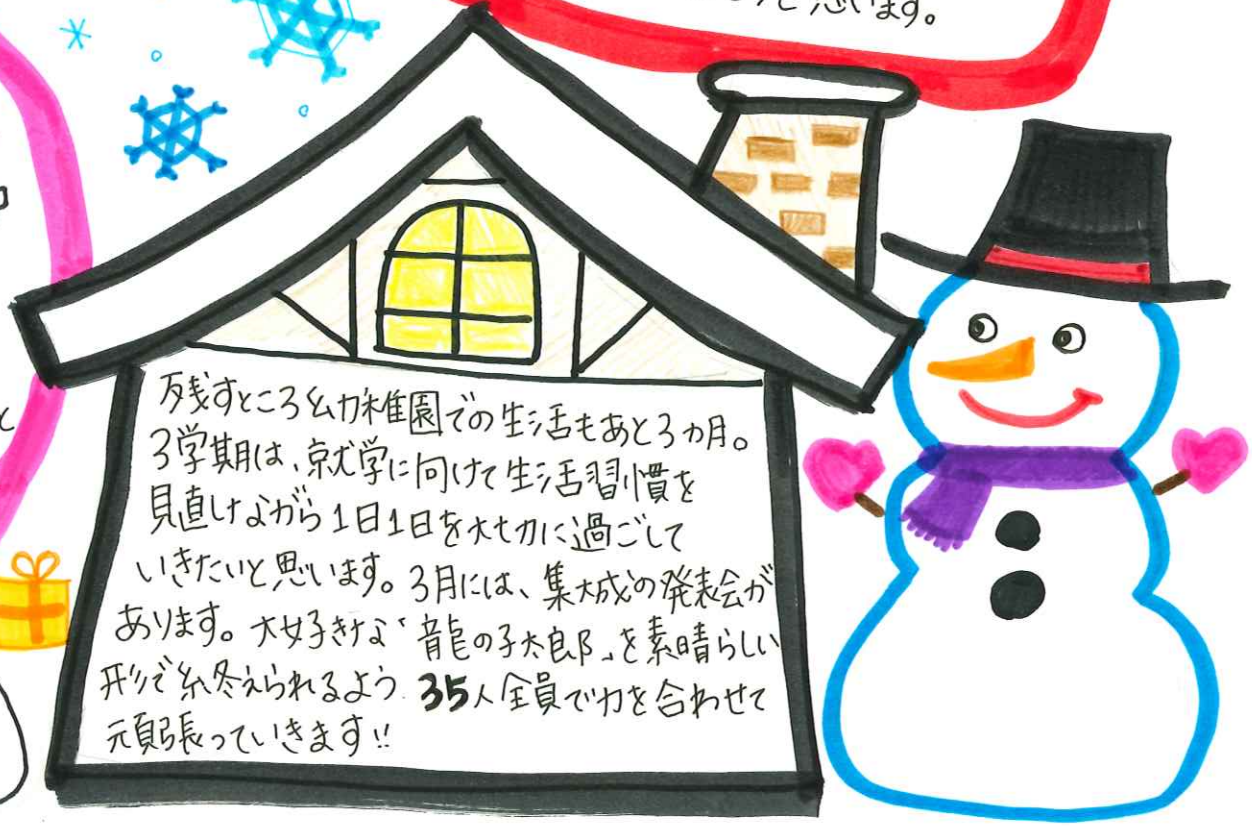 と思います。
と
残すところ幼稚園での生活もあと3カ月。
3学期は、就学に向けて生活習慣を
見直しながら1日1日を大切に過ごして
いきたいと思います。3月には、集大成の発表会が
あります。大好きな「龍の子太郎」を素晴らしい
形で終えられるよう 35人全員で力を合わせて
頑張っていきます!!